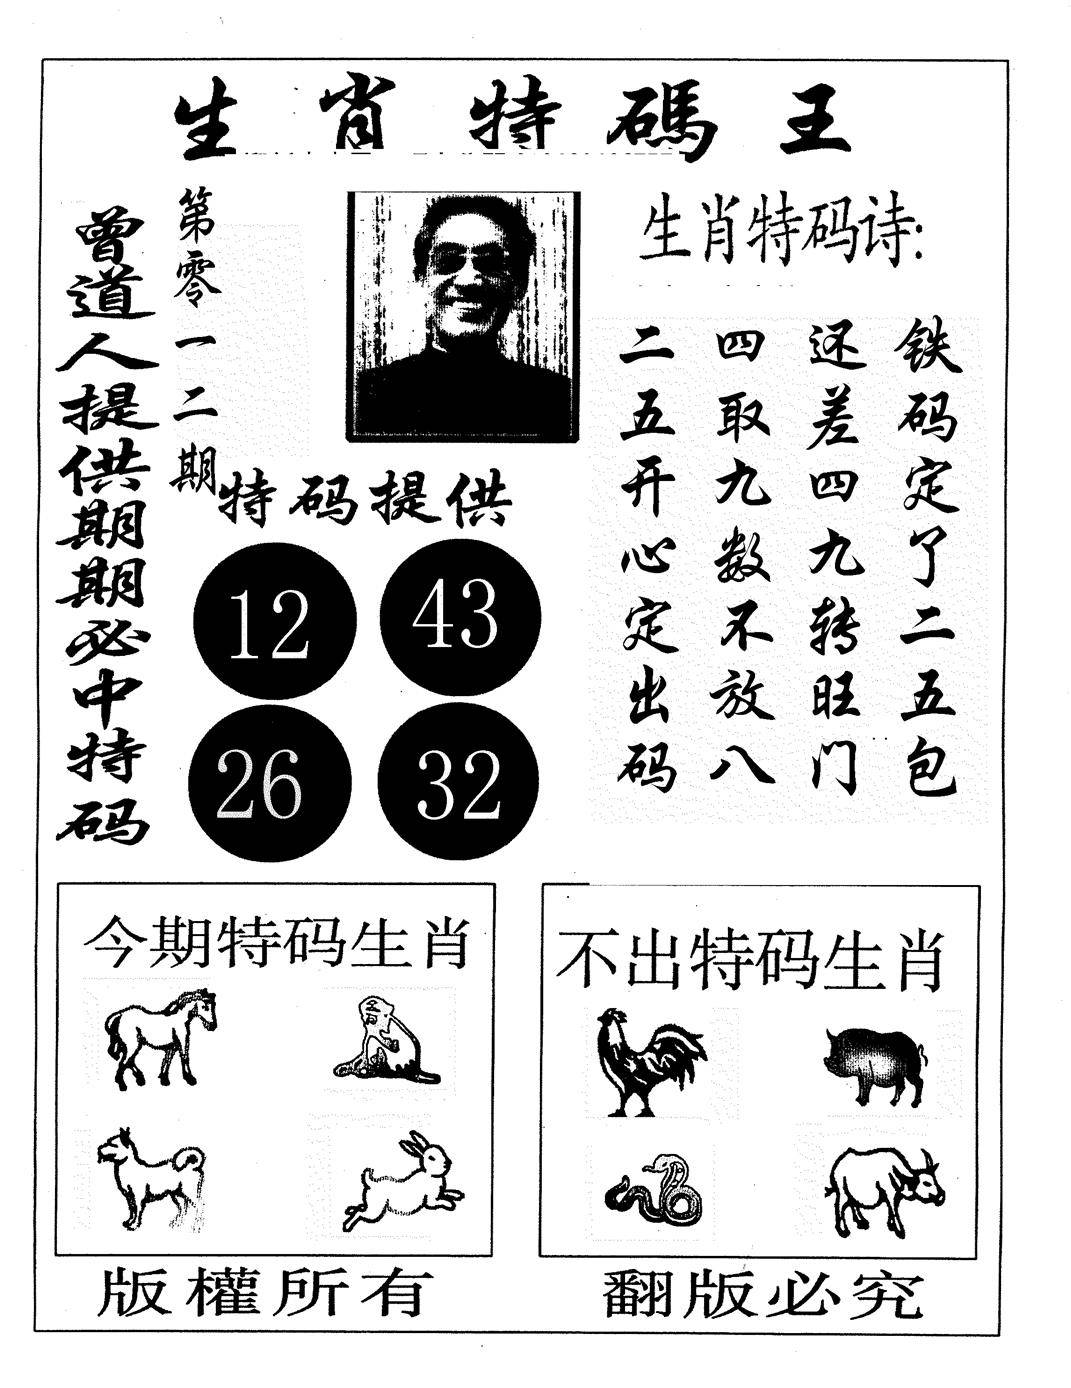 生肖特碼王
曾道人提供期期必中特码
第零一二期
生肖特码诗:
铁码定了二五包
还差四九转旺门
四取九数不放八
二五开心定出码
特码提供
12 43
26 32
今期特码生肖
不出特码生肖
版權所有
翻版必究